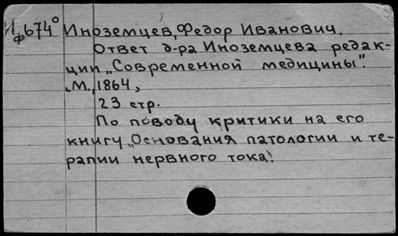 Иф674° Иноземцев, Федор Иванович.
Ответ д-ра Иноземцева редак-
ции „Современной медицины".
М., 1864,
23 стр.
По поводу критики на его
книгу „Основания патологии и те-
рапии нервного тока".